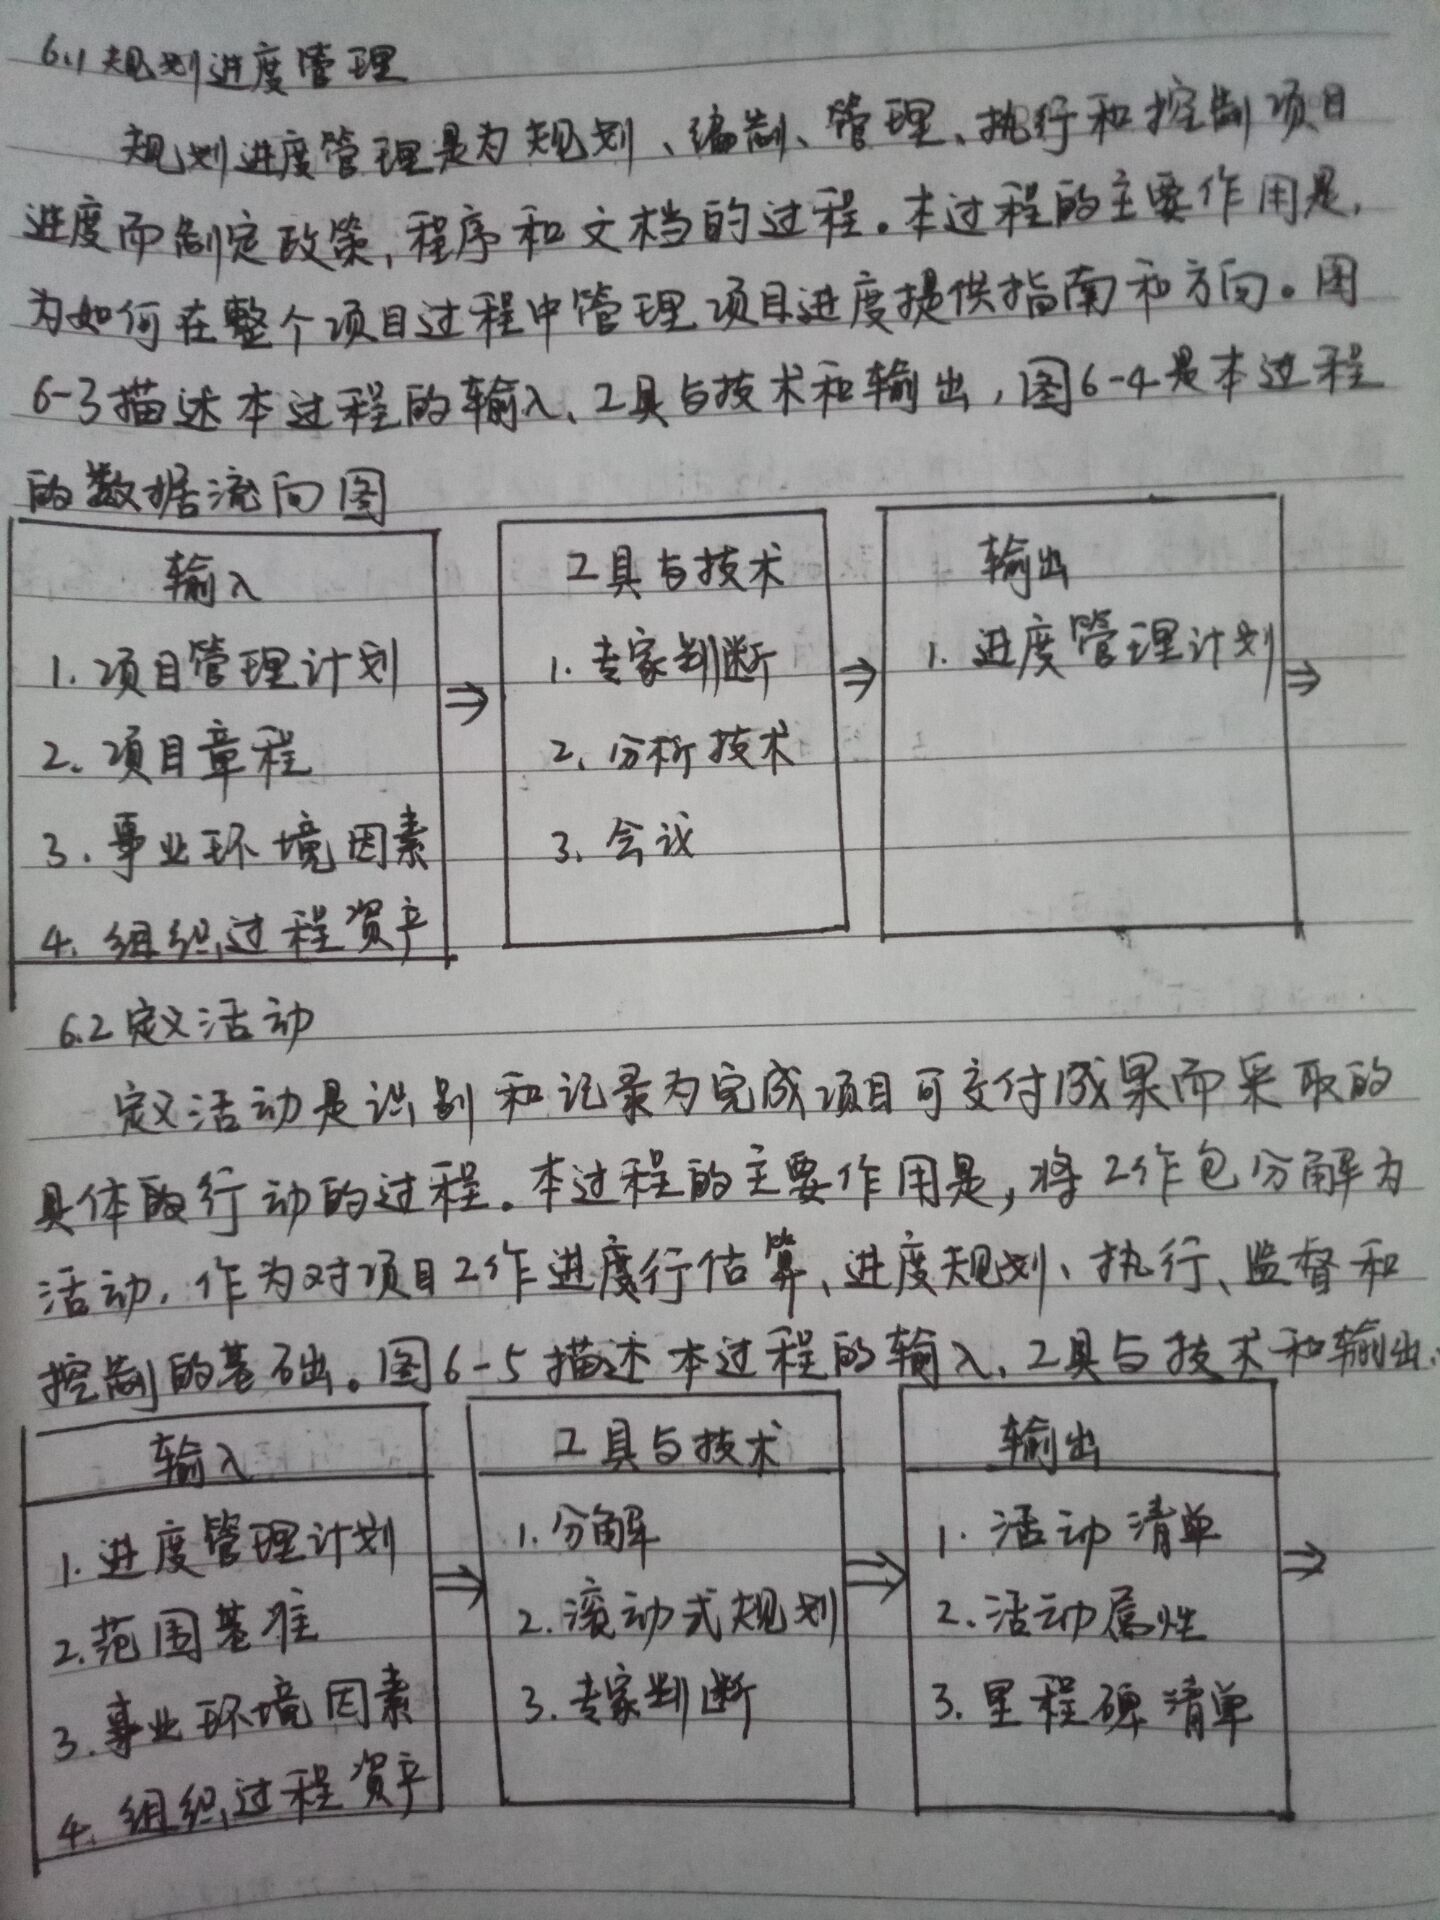 6.1 规划进度管理
规划进度管理是为规划、编制、管理、执行和控制项目
进度而制定政策,程序和文档的过程。本过程的主要作用是,
为如何在整个项目过程中管理项目进度提供指南和方向。图
6-3描述本过程的输入、工具与技术和输出,图6-4是本过程
的数据流向图
输入
1. 项目管理计划
2. 项目章程
3. 事业环境因素
4. 组织过程资产
⇒
工具与技术
1. 专家判断
2. 分析技术
3. 会议
⇒
输出
1. 进度管理计划
⇒
6.2 定义活动
定义活动是识别和记录为完成项目可交付成果而采取的
具体的行动的过程。本过程的主要作用是,将工作包分解为
活动,作为对项目工作进度行估算、进度规划、执行、监督和
控制的基础。图6-5描述本过程的输入、工具与技术和输出.
输入
1. 进度管理计划
2. 范围基准
3. 事业环境因素
4. 组织过程资产
⇒
工具与技术
1. 分解
2. 滚动式规划
3. 专家判断
⇒
输出
1. 活动清单
2. 活动属性
3. 里程碑清单
⇒